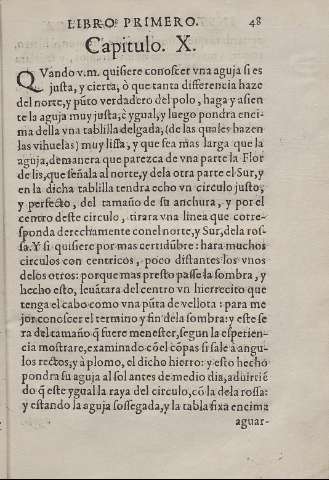 LIBRO PRIMERO. 48
Capitulo. X.
QVando v.m. quisiere conoscer vna aguja si es
justa, y cierta, ò que tanta differencia haze
del norte, y pũto verdadero del polo, haga y asien
te la aguja muy justa, è ygual, y luego pondra enci-
ma della vna tablilla delgada, (de las quales hazen
las vihuelas) muy lissa, y que sea mas larga que la
aguja, demanera que parezca de vna parte la Flor
de lis, que señala al norte, y dela otra parte el Sur, y
en la dicha tablilla tendra echo vn circulo justo,
y perfecto, del tamaño de su anchura, y por el
centro deste circulo, tirara vna linea que corre-
sponda derechamente conel norte, y Sur, dela ros-
sa. Y si quisiere por mas certidũbre: hara muchos
circulos con centricos, poco distantes los vnos
delos otros: porque mas presto passe la sombra, y
hecho esto, leuãtara del centro vn hierrecito que
tenga el cabo como vna pũta de vellota: para me
jor conoscer el termino y fin dela sombra: y este se
ra del tamaño q̃ fuere menester, segun la esperien-
cia mostrare, examinado cõ el cõpas si sale à angu-
los rectos, y à plomo, el dicho hierro: y esto hecho
pondra su aguja al sol antes de medio dia, aduirtiẽ
do q̃ este ygual la raya del circulo, cõ la dela rossa:
y estando la aguja sossegada, y la tabla fixa encima
aguar-